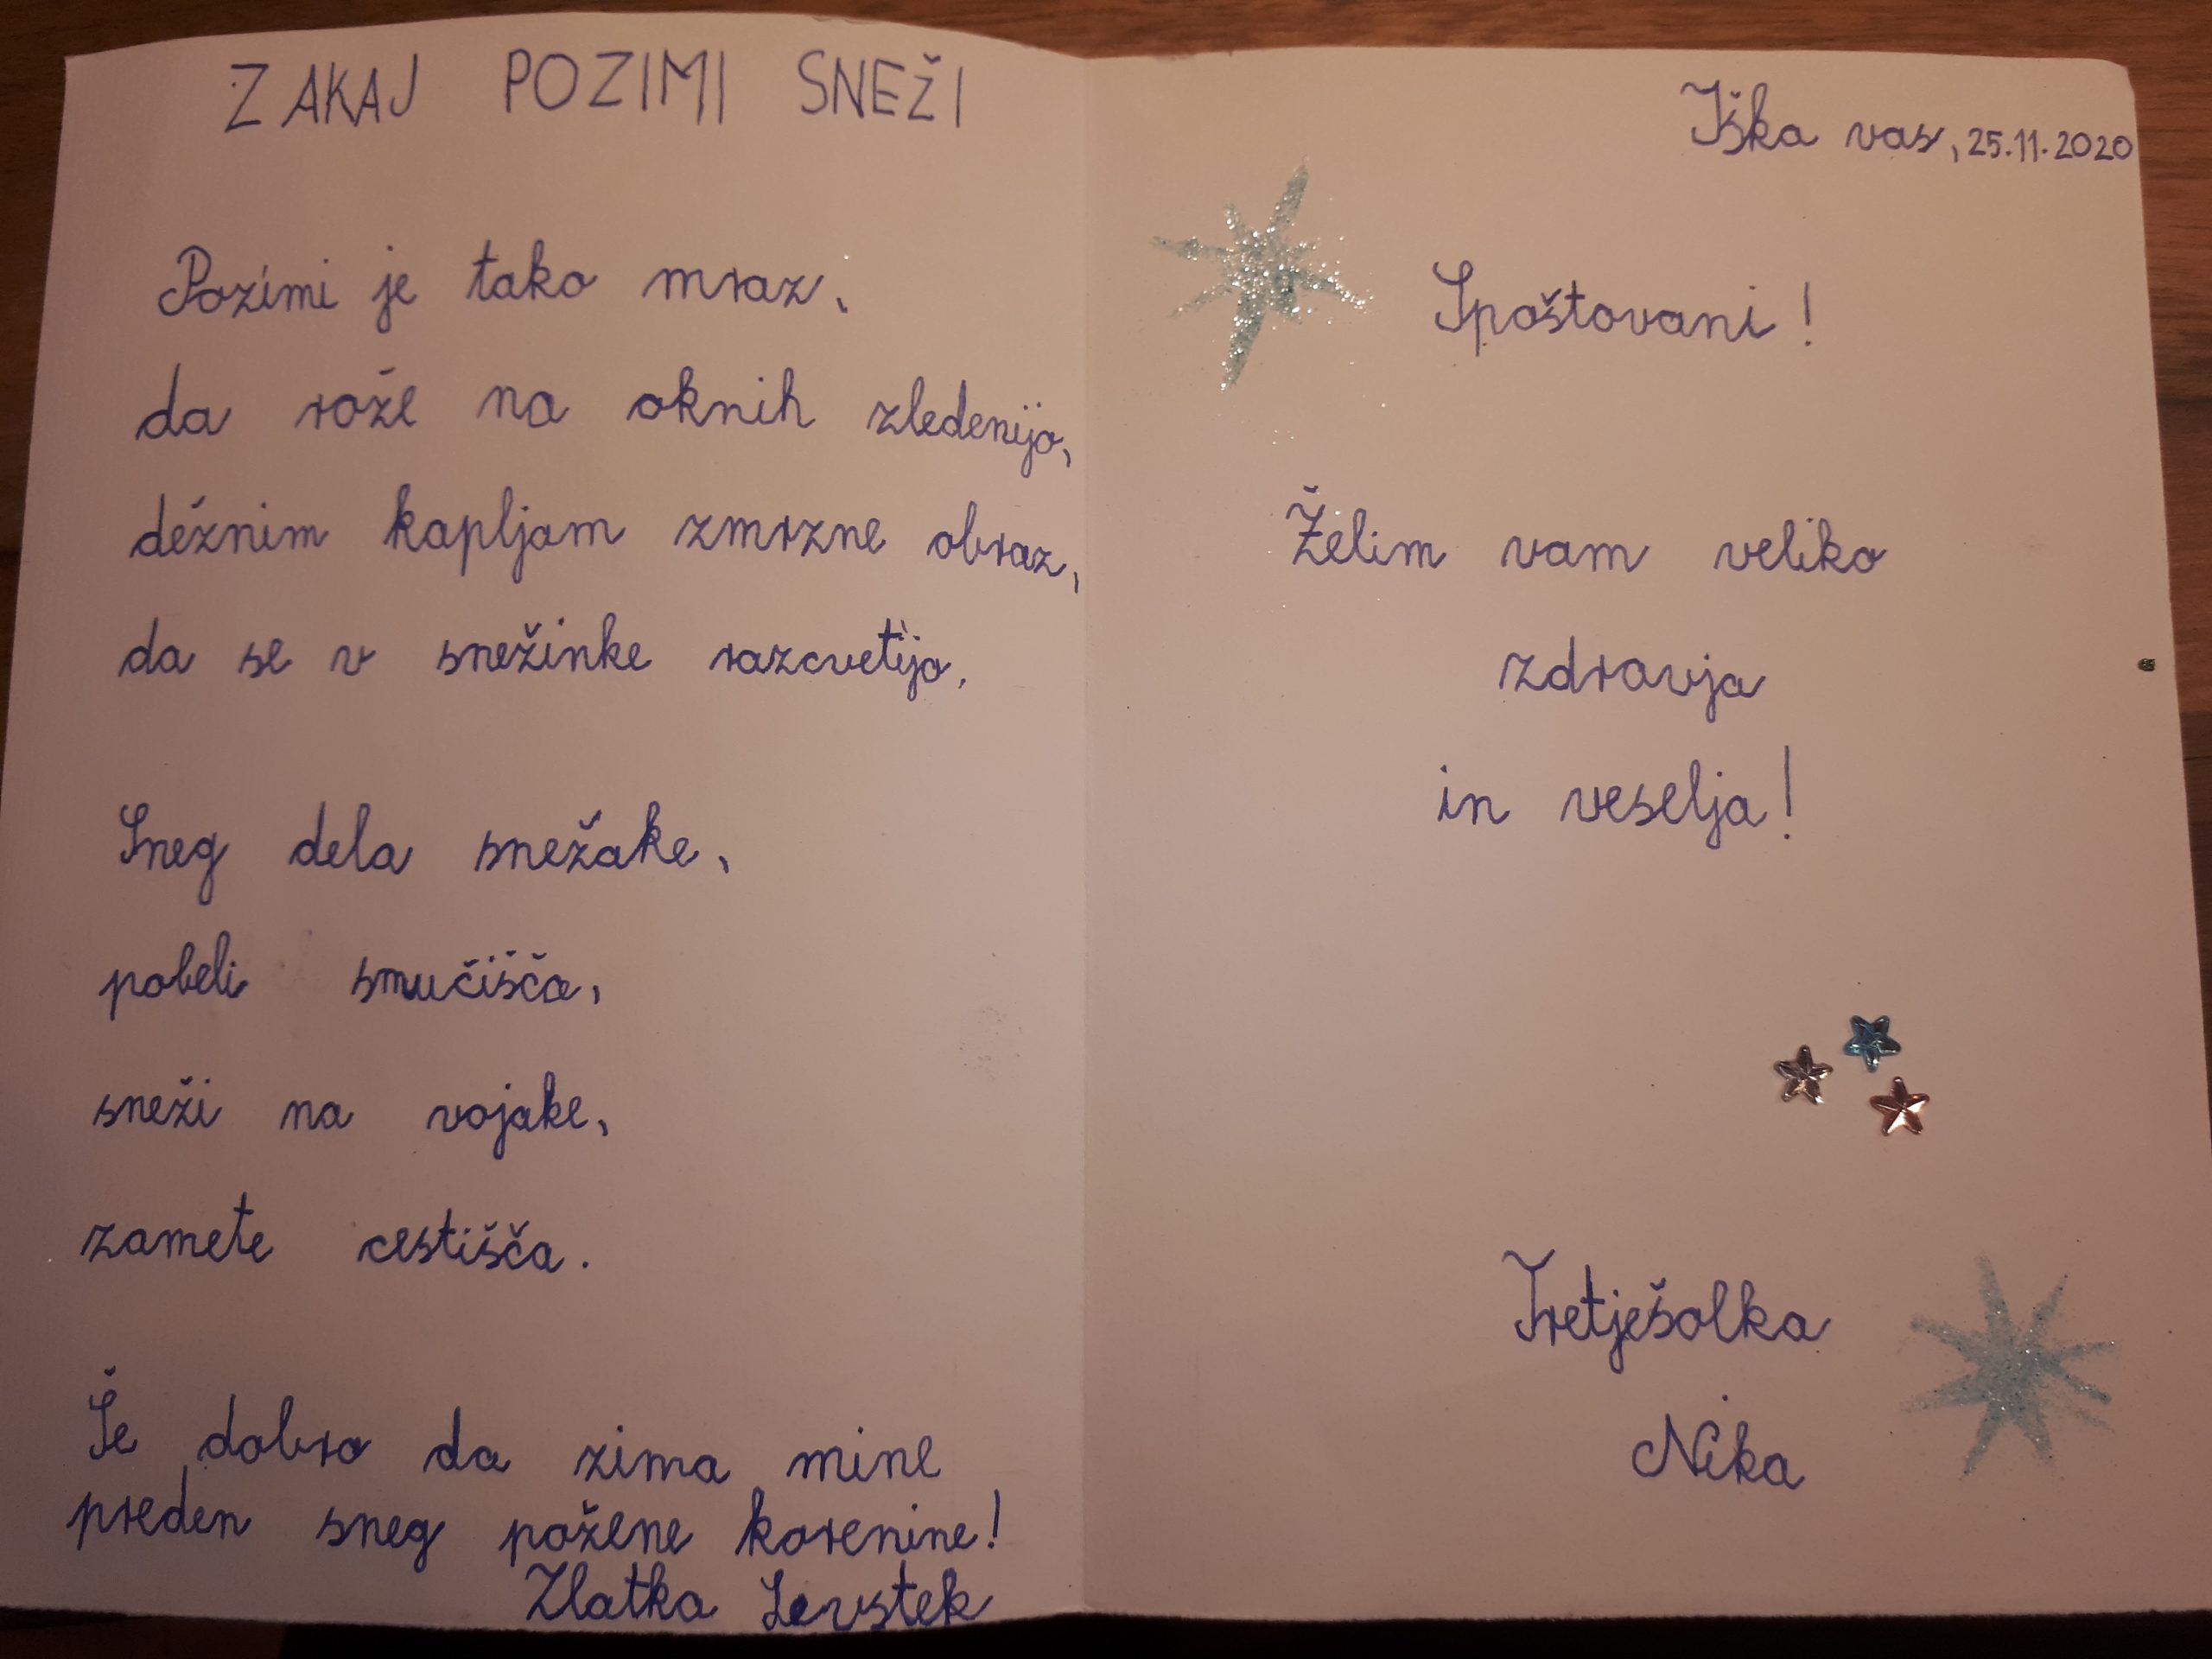 ZAKAJ POZIMI SNEŽI
Pozimi je tako mraz,
da rože na oknih zledenijo,
dežnim kapljam zmrzne obraz,
da se v snežinke razcvetijo.
Sneg dela snežake,
pobeli smučišča,
sneži na vojake,
zamete cestišča.
Še dobro da zima mine
preden sneg požene korenine!
Zlatka Levstek
Iška vas, 25.11.2020
Spoštovani!
Želim vam veliko
zdravja
in veselja!
Tretješolka
Nika